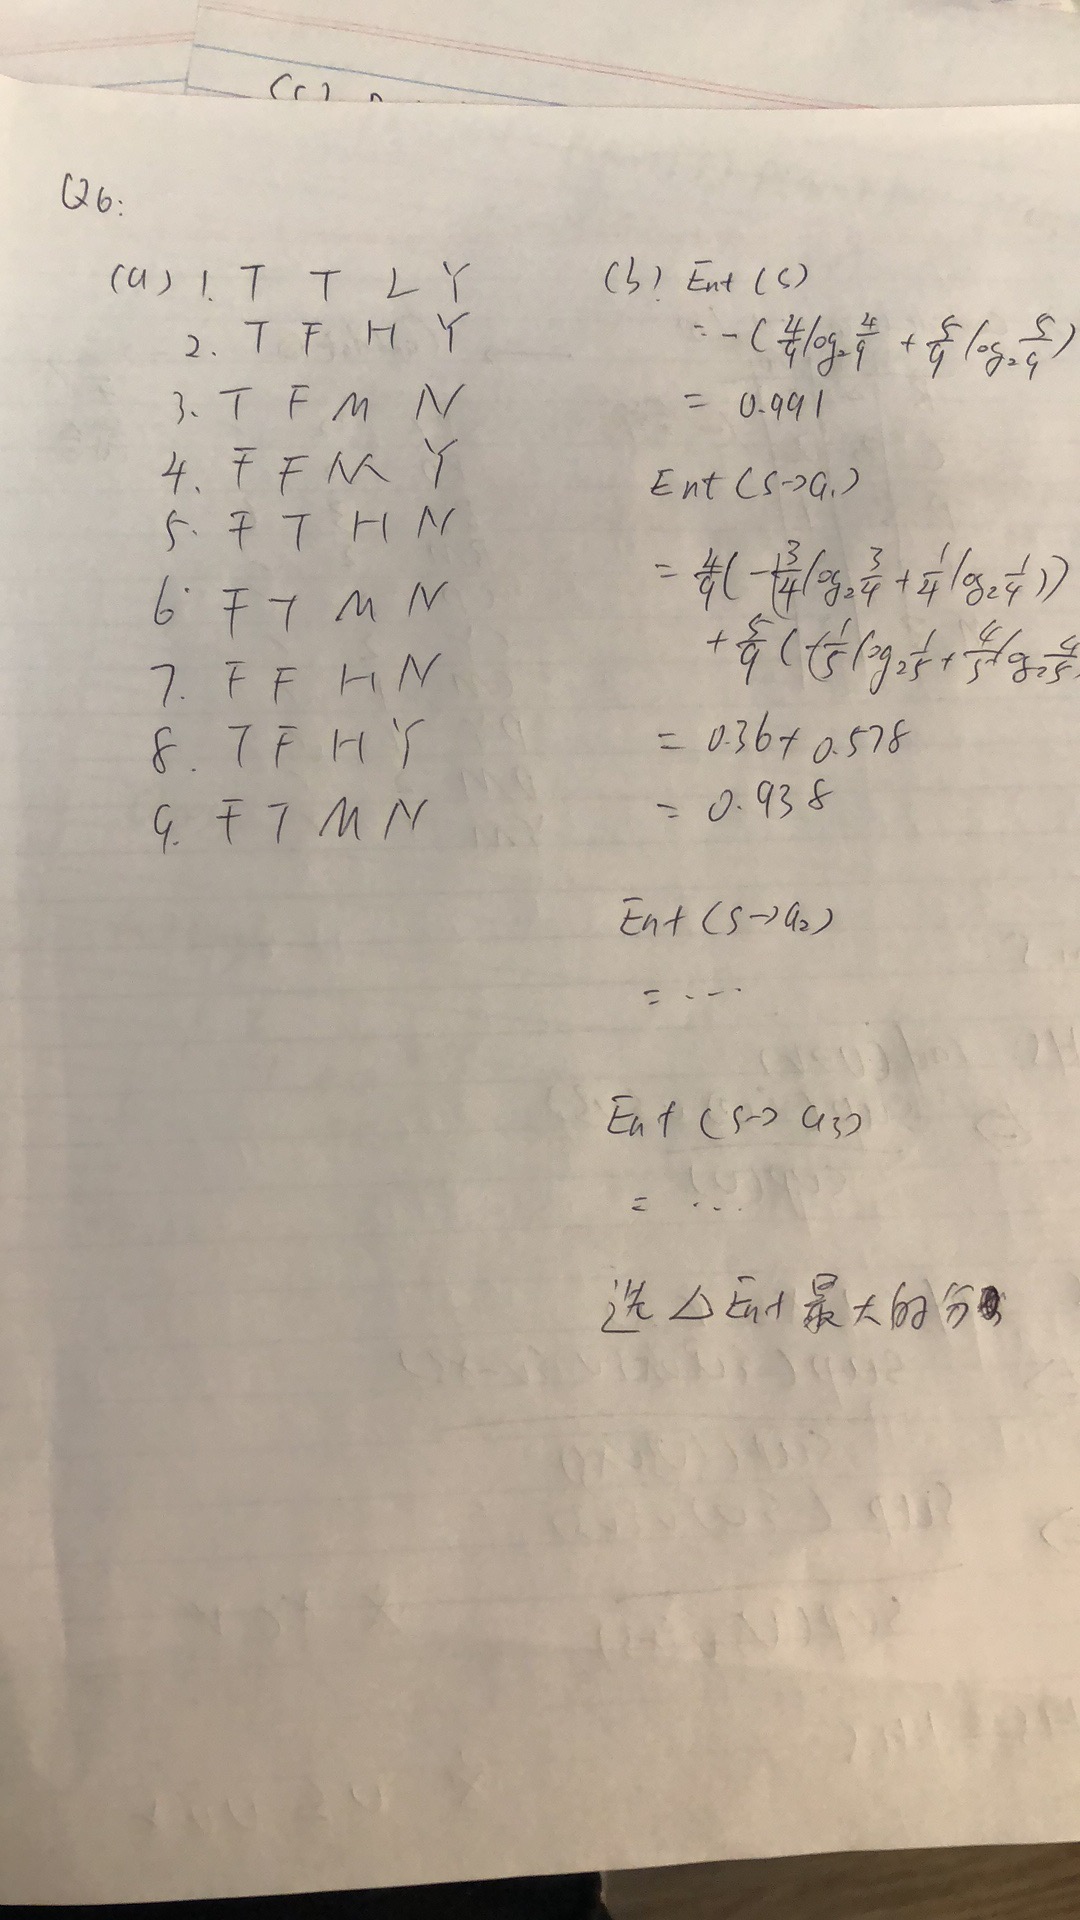 Q6:
(a) 1. T T L Y
2. T F H Y
3. T F M N
4. F F M Y
5. F T H N
6. F T M N
7. F F H N
8. T F H Y
9. F T M N
(b) Ent (S)
= - ( 4/9 log₂ 4/9 + 5/9 log₂ 5/9 )
= 0.991
Ent (S→a₁)
= 4/9 ( -( 3/4 log₂ 3/4 + 1/4 log₂ 1/4 ))
+ 5/9 ( -( 1/5 log₂ 1/5 + 4/5 log₂ 4/5
= 0.36 + 0.578
= 0.938
Ent (S→a₂)
= ...
Ent (S→ a₃)
= ...
选 △ Ent 最大的分